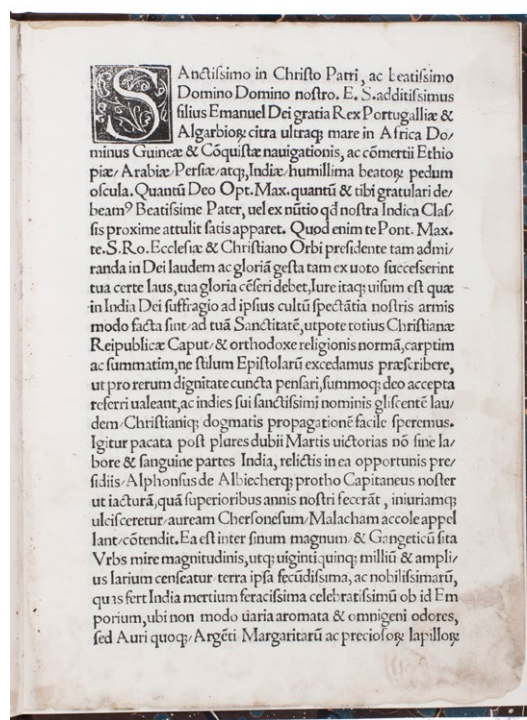 SAnctissimo in Christo Patri, ac beatissimo
Domino Domino nostro. E. S. additissimus
filius Emanuel Dei gratia Rex Portugalliæ &
Algarbioꝝ citra ultraqꝫ mare in Africa Do⸗
minus Guineæ & Cõquistæ nauigationis, ac cõmertii Ethio
piæ⸝ Arabiæ⸝ Persiæ⸝ atqꝫ Indiæ⸝ humillima beatoꝝ pedum
oscula. Quantũ Deo Opt. Max. quantũ & tibi gratulari de⸗
beamꝰ Beatissime Pater, uel ex nũtio qđ nostra Indica Clas⸗
sis proxime attulit satis apparet. Quod enim te Pont. Max.
te. S. Ro. Ecclesiæ & Christiano Orbi presidente tam admi⸗
randa in Dei laudem ac gloriã gesta tam ex uoto successerint
tua certe laus, tua gloria cẽseri debet, Iure itaqꝫ uisum est quæ
in India Dei suffragio ad ipsius cultũ spectãtia nostris armis
modo facta sint⸝ ad tuã Sanctitatẽ, utpote totius Christianæ
Reipublicæ Caput⸝ & orthodoxe religionis normã, carptim
ac summatim, ne stilum Epistolarũ excedamus præscribere,
ut pro rerum dignitate cuncta pensari, summoqꝫ deo accepta
referri ualeant, ac indies sui sanctissimi nominis gliscentẽ lau⸗
dem⸝ Christianiqꝫ dogmatis propagationẽ facile speremus.
Igitur pacata post plures dubii Martis uictorias nõ sine la⸗
bore & sanguine partes India, relictis in ea opportunis pre⸗
sidiis⸝ Alphonsus de Albiecherqꝫ protho Capitaneus noster
ut iacturã, quã superioribus annis nostri fecerãt, iniuriamqꝫ
ulcisceretur⸝ auream Chersonesum⸝ Malacham accole appel
lant⸝ cõtendit. Ea est inter sinum magnum⸝ & Gangeticũ sita
Vrbs mire magnitudinis, utqꝫ uigintiquinqꝫ milliũ & ampli⸗
us larium censeatur⸝ terra ipsa fecũdissima, ac nobilissimarũ,
quas fert India mertium feracissima celebratissimũ ob id Em
porium, ubi non modo uaria aromata & omnigeni odores,
sed Auri quoqꝫ⸝ Argẽti⸝ Margaritarũ ac preciosoꝝ lapilloꝝ